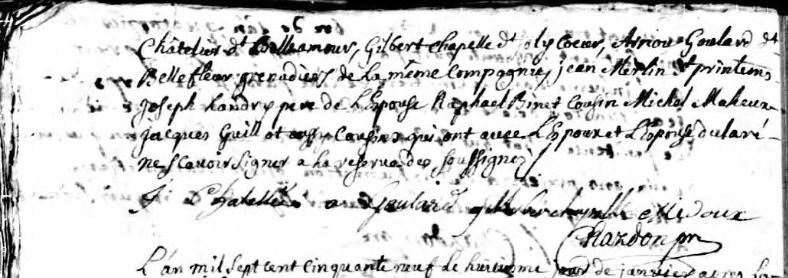 Châtelier dt Bellamour, Gilbert Chapelle dt joly Coeur, Arnou Goulard dt
Bellefleur grenadiers de la même Compagnie, jean Merlin dt printems
joseph Landry pere de L'Epouse Raphael Binet Cousin Michel Maheux
jacques Guillot aussy Cousin qui ont avec L'Epoux et L'Epouse declaré
ne Scavoir Signer a la reserve des soussignez
Chatellier a Goulard gilbert chapelle
Chardon ptre
L'an mil Sept cent Cinquante neuf le huitieme jour de janvier